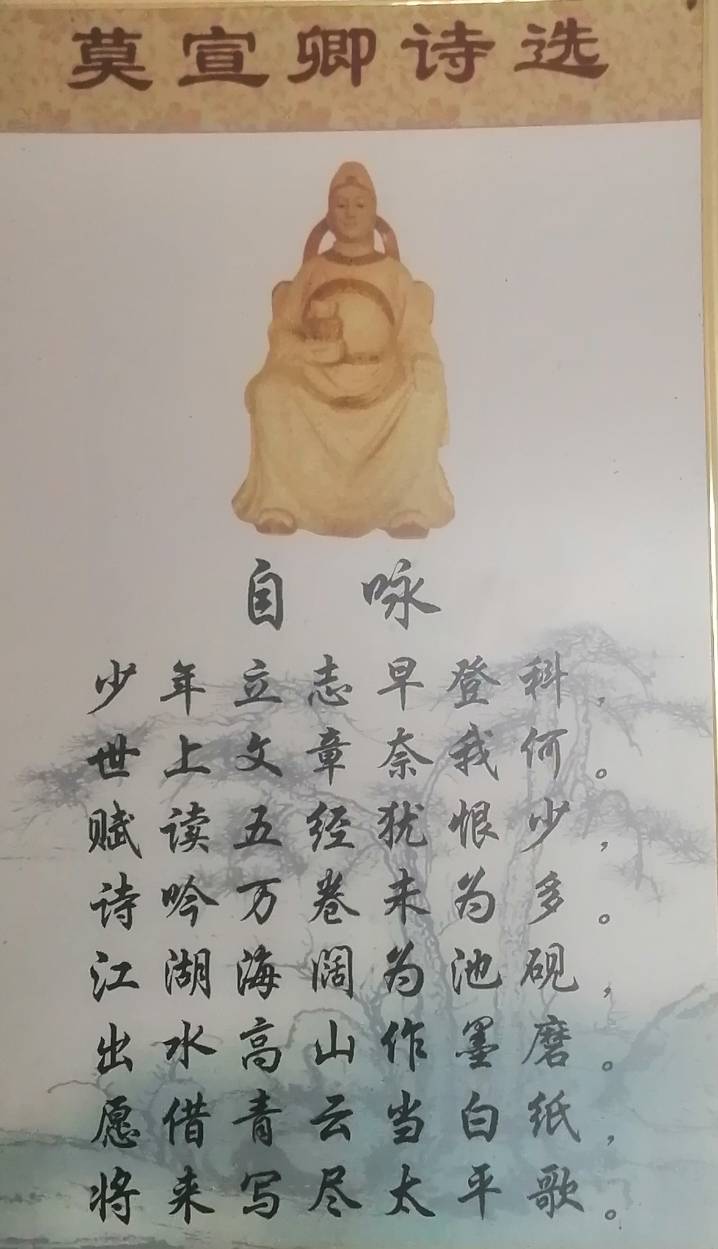 莫宣卿诗选
自咏
少年立志早登科，
世上文章奈我何。
赋读五经犹恨少，
诗吟万卷未为多。
江湖海阔为池砚，
出水高山作墨磨。
愿借青云当白纸，
将来写尽太平歌。